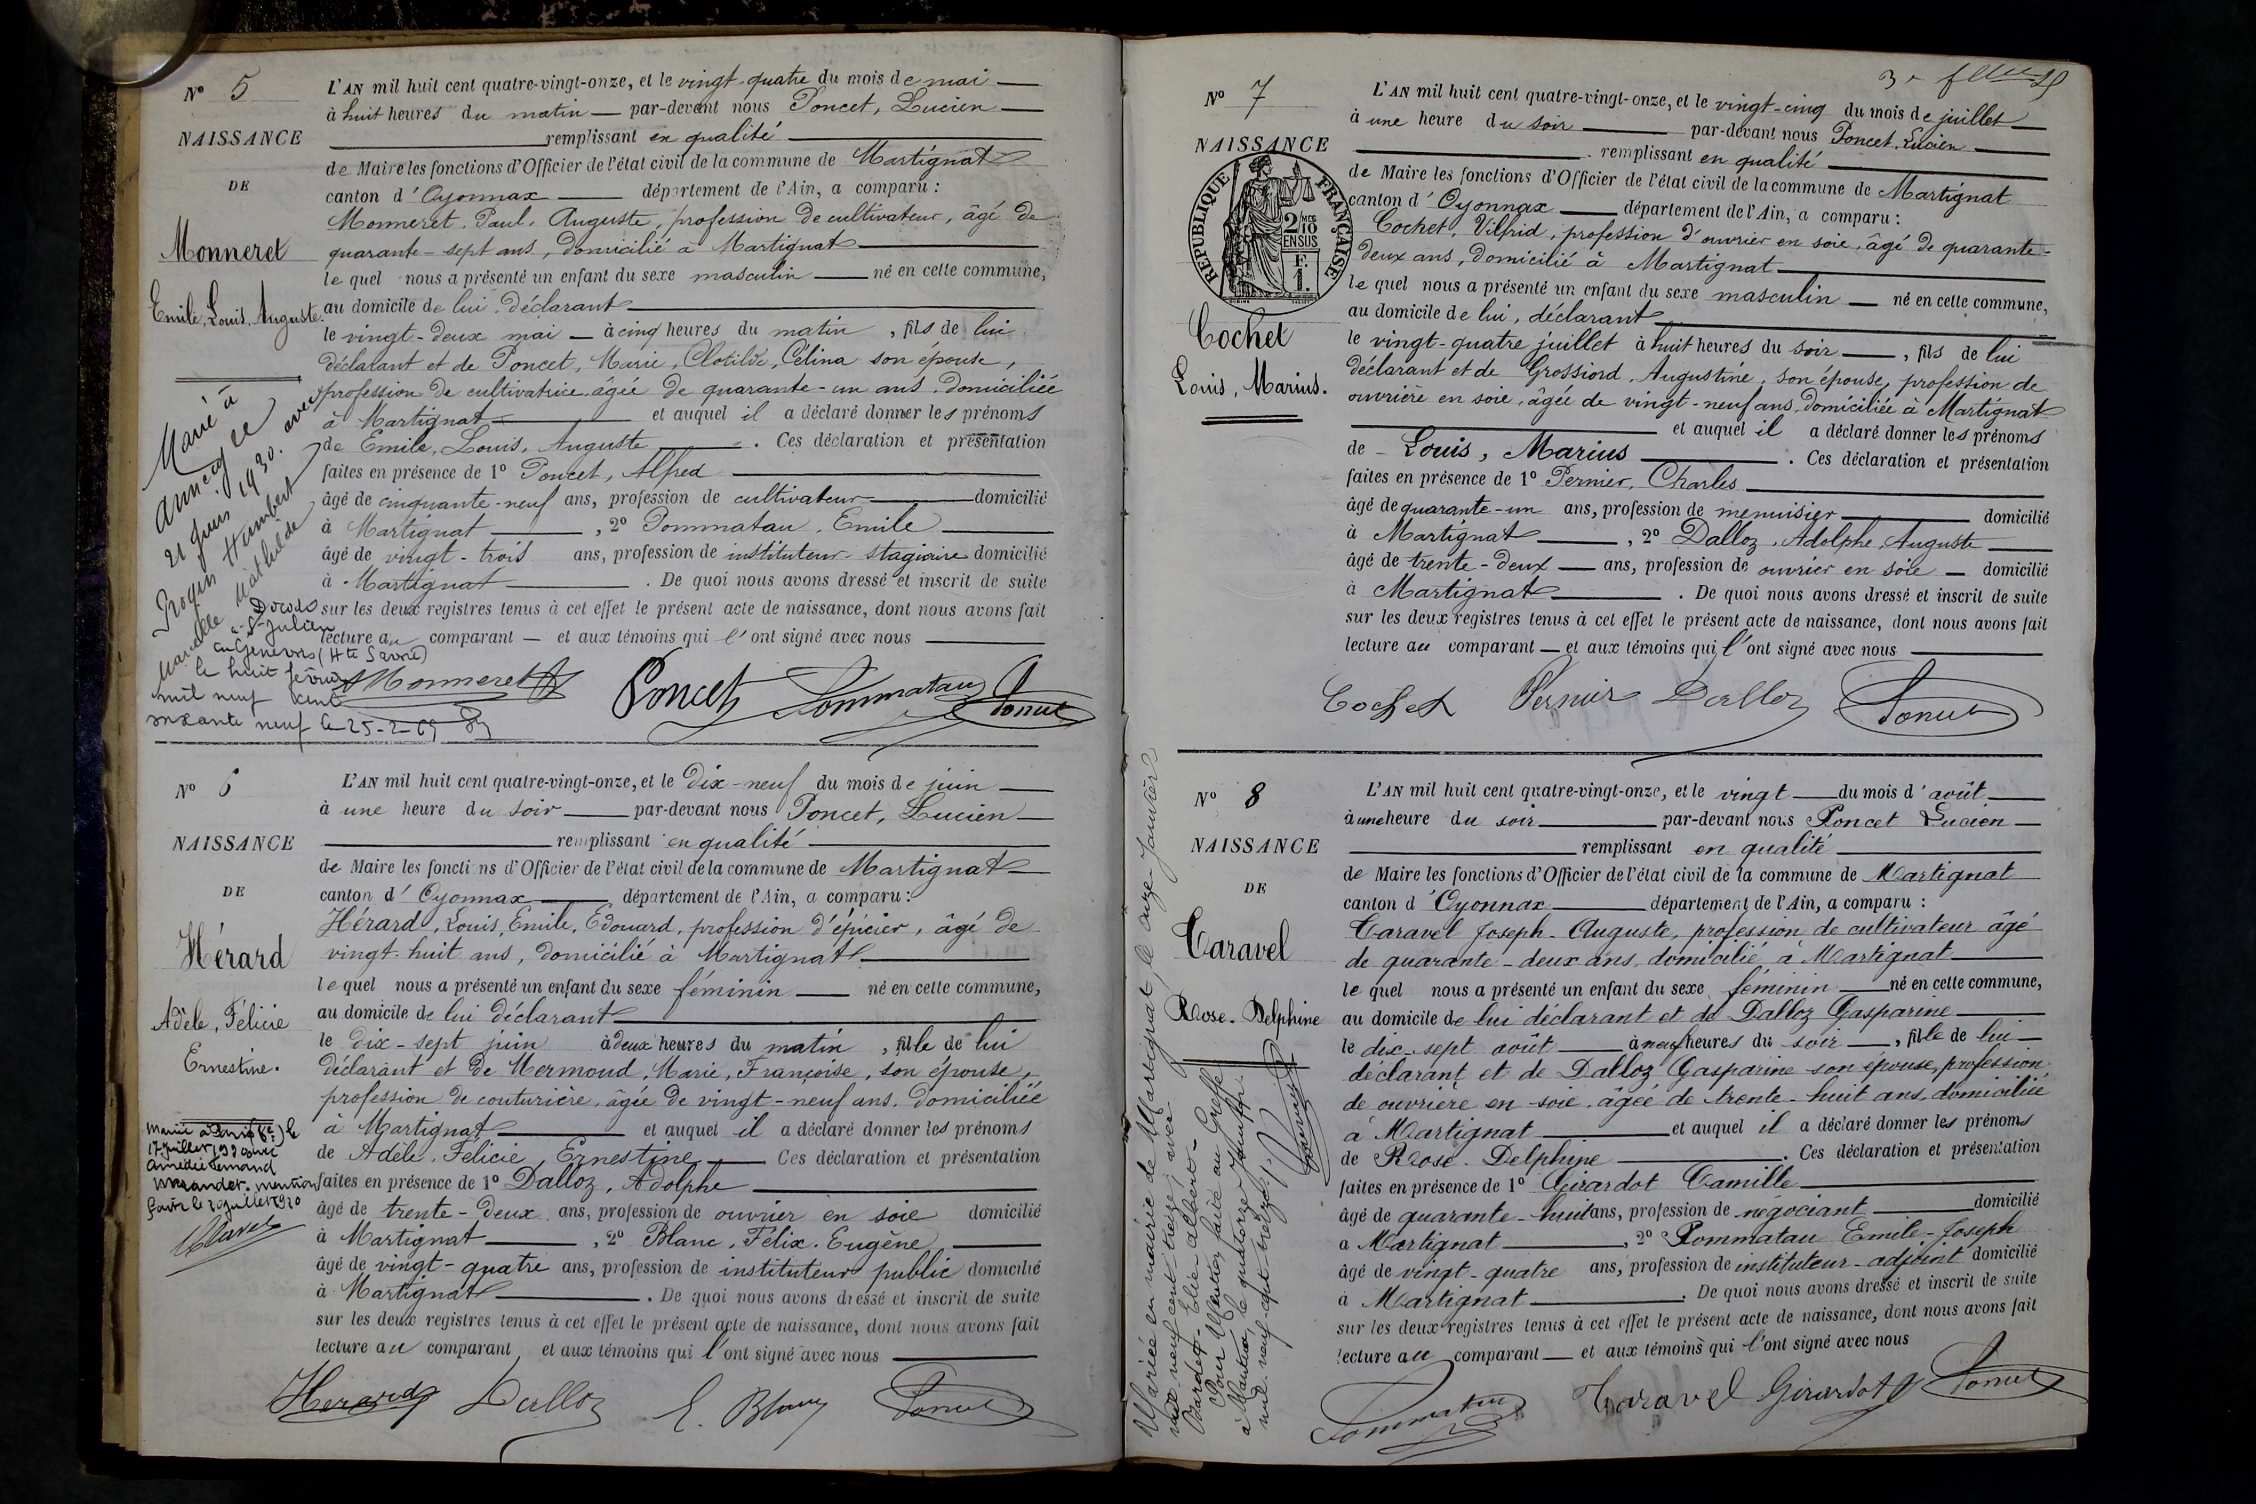 N° 5
NAISSANCE
DE
Monneret
Emile, Louis, Auguste.
L'AN mil huit cent quatre-vingt-onze, et le vingt-quatre du mois de mai
à huit heures du matin par-devant nous Poncet, Lucien
remplissant en qualité
de Maire les fonctions d'Officier de l'état civil de la commune de Martignat
canton d'Oyonnax département de l'Ain, a comparu :
Monneret, Paul, Auguste, profession de cultivateur, âgé de
quarante-sept ans, domicilié à Martignat
lequel nous a présenté un enfant du sexe masculin né en cette commune,
au domicile de lui déclarant
le vingt-deux mai à cinq heures du matin, fils de lui
déclarant et de Poncet, Marie, Clotilde, Célina son épouse,
profession de cultivatrice âgée de quarante-un ans domiciliée
à Martignat et auquel il a déclaré donner les prénoms
de Emile, Louis, Auguste. Ces déclaration et présentation
faites en présence de 1° Poncet, Alfred
âgé de cinquante-neuf ans, profession de cultivateur domicilié
à Martignat, 2° Pommatau, Emile
âgé de vingt-trois ans, profession de instituteur-stagiaire domicilié
à Martignat. De quoi nous avons dressé et inscrit de suite
sur les deux registres tenus à cet effet le présent acte de naissance, dont nous avons fait
lecture au comparant et aux témoins qui l'ont signé avec nous
Marié à
Annecy le
21 Juin 1930. avec
Humbert
Marcelle Mathilde
Décédé
à St-Julien
en Genevois (Hte Savoie)
le huit février
mil neuf cent
soixante neuf le 25-2-69
Monneret Poncet Pommatau Poncet
N° 6
NAISSANCE
DE
Hérard
Adèle, Félicie
Ernestine.
L'AN mil huit cent quatre-vingt-onze, et le dix-neuf du mois de juin
à une heure du soir par-devant nous Poncet, Lucien
remplissant en qualité
de Maire les fonctions d'Officier de l'état civil de la commune de Martignat
canton d'Oyonnax département de l'Ain, a comparu :
Hérard, Louis, Emile, Edouard, profession d'épicier, âgé de
vingt-huit ans, domicilié à Martignat
lequel nous a présenté un enfant du sexe féminin né en cette commune,
au domicile de lui déclarant
le dix-sept juin à deux heures du matin, fille de lui
déclarant et de Mermoud, Marie, Françoise, son épouse,
profession de couturière, âgée de vingt-neuf ans, domiciliée
à Martignat et auquel il a déclaré donner les prénoms
de Adèle, Félicie, Ernestine Ces déclaration et présentation
faites en présence de 1° Dalloz, Adolphe
âgé de trente-deux ans, profession de ouvrier en soie domicilié
à Martignat, 2° Blanc, Félix, Eugène
âgé de vingt-quatre ans, profession de instituteur public domicilié
à Martignat. De quoi nous avons dressé et inscrit de suite
sur les deux registres tenus à cet effet le présent acte de naissance, dont nous avons fait
lecture au comparant et aux témoins qui l'ont signé avec nous
17 Juillet 1920 avec
Amédée Fernand
mention
Juillet 1920
Herard Dalloz E. Blanc Poncet
N° 7
NAISSANCE
RÉPUBLIQUE FRANÇAISE
2 MES
10
EN SUS
F.
1.
Cochet
Louis, Marius.
L'AN mil huit cent quatre-vingt-onze, et le vingt-cinq du mois de juillet
à une heure du soir par-devant nous Poncet, Lucien
remplissant en qualité
de Maire les fonctions d'Officier de l'état civil de la commune de Martignat
canton d'Oyonnax département de l'Ain, a comparu :
Cochet, Vilfrid, profession d'ouvrier en soie, âgé de quarante-
deux ans, domicilié à Martignat
lequel nous a présenté un enfant du sexe masculin né en cette commune,
au domicile de lui, déclarant
le vingt-quatre juillet à huit heures du soir, fils de lui
déclarant et de Grossiord, Augustine, son épouse, profession de
ouvrière en soie, âgée de vingt-neuf ans, domiciliée à Martignat
et auquel il a déclaré donner les prénoms
de Louis, Marius. Ces déclaration et présentation
faites en présence de 1° Pernier, Charles
âgé de quarante-un ans, profession de menuisier domicilié
à Martignat, 2° Dalloz, Adolphe, Auguste
âgé de trente-deux ans, profession de ouvrier en soie domicilié
à Martignat. De quoi nous avons dressé et inscrit de suite
sur les deux registres tenus à cet effet le présent acte de naissance, dont nous avons fait
lecture au comparant et aux témoins qui l'ont signé avec nous
Cochet Pernier Dalloz Poncet
N° 8
NAISSANCE
DE
Caravel
Rose-Delphine
L'AN mil huit cent quatre-vingt-onze, et le vingt du mois d'août
à une heure du soir par-devant nous Poncet Lucien
remplissant en qualité
de Maire les fonctions d'Officier de l'état civil de la commune de Martignat
canton d'Oyonnax département de l'Ain, a comparu :
Caravel Joseph-Auguste, profession de cultivateur âgé
de quarante-deux ans domicilié à Martignat
lequel nous a présenté un enfant du sexe féminin né en cette commune,
au domicile de lui déclarant et de Dalloz Gasparine
le dix-sept août à neuf heures du soir, fille de lui
déclarant et de Dalloz Gasparine son épouse, profession
de ouvrière en soie, âgée de trente-huit ans, domiciliée
à Martignat et auquel il a déclaré donner les prénoms
de Rose-Delphine. Ces déclaration et présentation
faites en présence de 1° Girardot Camille
âgé de quarante-huit ans, profession de négociant domicilié
à Martignat, 2° Pommatau Emile-Joseph
âgé de vingt-quatre ans, profession de instituteur-adjoint domicilié
à Martignat. De quoi nous avons dressé et inscrit de suite
sur les deux registres tenus à cet effet le présent acte de naissance, dont nous avons fait
lecture au comparant et aux témoins qui l'ont signé avec nous
Mariée en mairie de Martignat, le onze Janvier
mil neuf cent treize, avec
Bardet-Elie-Albert-
Pour Mention faite au Greffe
à Nantua, le quatorze Janvier
mil neuf cent treize.
Pommatau Caravel Girardot Poncet